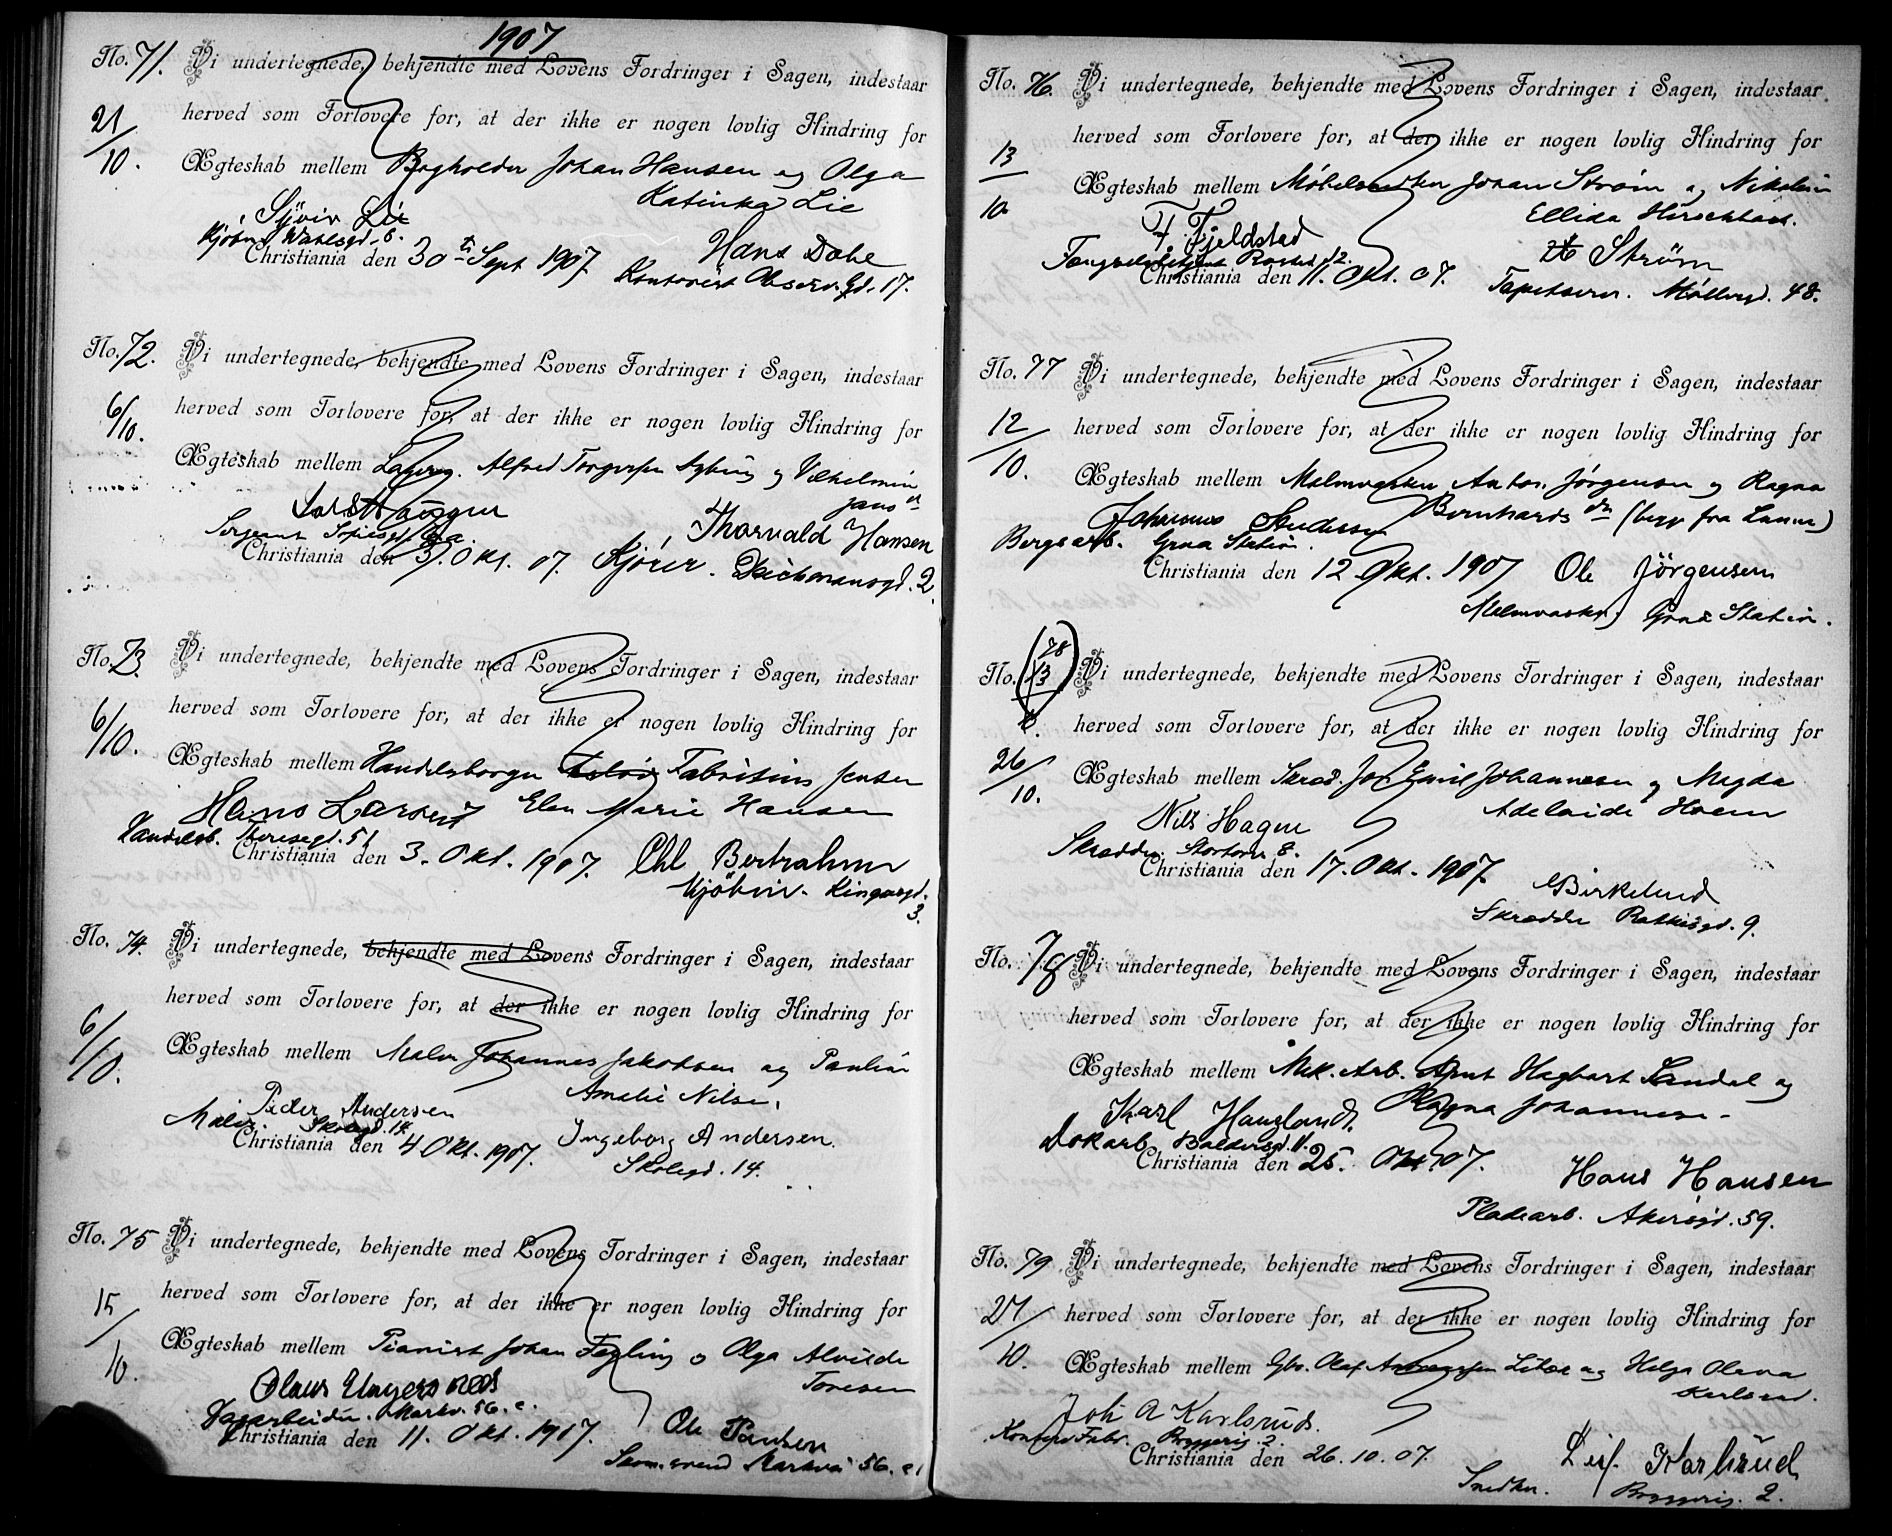 1907
No. 71. Vi undertegnede, bekjendte med Lovens Fordringer i Sagen, indestaar
21/10. herved som Forlovere for, at der ikke er nogen lovlig Hindring for
Ægteskab mellem Bogholder Johan Hansen og Olga
Katinka Lie
Lie
Hans Dahe
Christiania den 30te Sept 1907
Kontorist Observ.gd. 17.
No. 72. Vi undertegnede, bekjendte med Lovens Fordringer i Sagen, indestaar
6/10. herved som Forlovere for, at der ikke er nogen lovlig Hindring for
Ægteskab mellem Alfred Torgersen og Vilhelmine
Thorvald Hansen
Sergeant
Christiania den 3. Okt. 07. Kjører. Deichmansgd. 2.
No. 73. Vi undertegnede, bekjendte med Lovens Fordringer i Sagen, indestaar
6/10. herved som Forlovere for, at der ikke er nogen lovlig Hindring for
Ægteskab mellem Handelsborger Fabritius Jensen
Hans Larsen Elen Marie Hansen
Handelsb. Theresegd. 51
Christiania den 3. Okt. 1907. Chl Bertrahm
Kjøbm. Kingosgd.
3.
No. 74. Vi undertegnede, bekjendte med Lovens Fordringer i Sagen, indestaar
6/10. herved som Forlovere for, at der ikke er nogen lovlig Hindring for
Ægteskab mellem Maler Johannes Jakobsen og Pauline
Amalie Nilsen.
Peder Andersen
Maler. Skolegd. 14.
Christiania den 4 Okt. 1907. Ingeborg Andersen.
Skolegd. 14.
No. 75 Vi undertegnede, bekjendte med Lovens Fordringer i Sagen, indestaar
15/10. herved som Forlovere for, at der ikke er nogen lovlig Hindring for
Ægteskab mellem Pianist Johan Fegling o Olga Alvilde
Toresen
Olaus
Markv. 56. c.
Christiania den 11. Okt. 1907. Ole Paulsen
Markvei 56. c
No. 76. Vi undertegnede, bekjendte med Lovens Fordringer i Sagen, indestaar
13/10. herved som Forlovere for, at der ikke er nogen lovlig Hindring for
Ægteskab mellem Møbelsnedker Johan Strøm og Nikoline
Ellida
F. Fjeldstad
Strøm
Christiania den 11. Okt. 07. Tapetserer. Møllergd. 48.
No. 77 Vi undertegnede, bekjendte med Lovens Fordringer i Sagen, indestaar
12/10. herved som Forlovere for, at der ikke er nogen lovlig Hindring for
Ægteskab mellem Malmvasker Anton Jørgensen og Ragna
Johannes Bernhards dtr (begge fra Lunner)
Bergsarb. Grua Station.
Christiania den 12 Okt. 1907 Ole Jörgensen
Malmvasker, Grua Station.
No. (78 13/10.) Vi undertegnede, bekjendte med Lovens Fordringer i Sagen, indestaar
26/10. herved som Forlovere for, at der ikke er nogen lovlig Hindring for
Ægteskab mellem Skræd. Jon Emil Johannesen og Magda
Adelaide Hoem
Nils Hagen
Skrædder. Stortorv. 8.
Christiania den 17. Okt. 1907.
Birkelund
Skrædder 9.
No. 78 Vi undertegnede, bekjendte med Lovens Fordringer i Sagen, indestaar
herved som Forlovere for, at der ikke er nogen lovlig Hindring for
Ægteskab mellem Mek. Arb. Arnt Hagbart Sandal og
Ragna Johannesen
Karl Haugland.
Dokarb. Baldersgd. 11.
Christiania den 25. Okt. 07.
Hans Hansen
Pladearb. Akersgd. 59.
No. 79 Vi undertegnede, bekjendte med Lovens Fordringer i Sagen, indestaar
27/10. herved som Forlovere for, at der ikke er nogen lovlig Hindring for
Ægteskab mellem Olaf og Helga Olava
Karlsrud.
Joh A Karlsrud.
Bryggerig. 2.
Christiania den 26. 10. 07. Leif Karlsrud
Snedker. Bryggerig. 2.